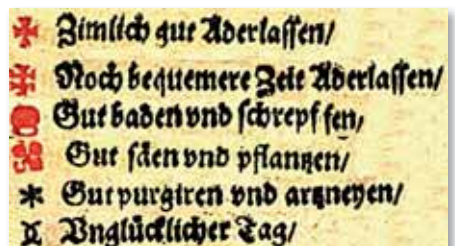 Zimlich gut Aderlassen/
Noch bequemere Zeit Aderlassen/
Gut baden vnd schrepffen,
Gut säen vnd pflantzen/
Gut purgiren vnd artzneyen/
Vnglücklicher Tag/